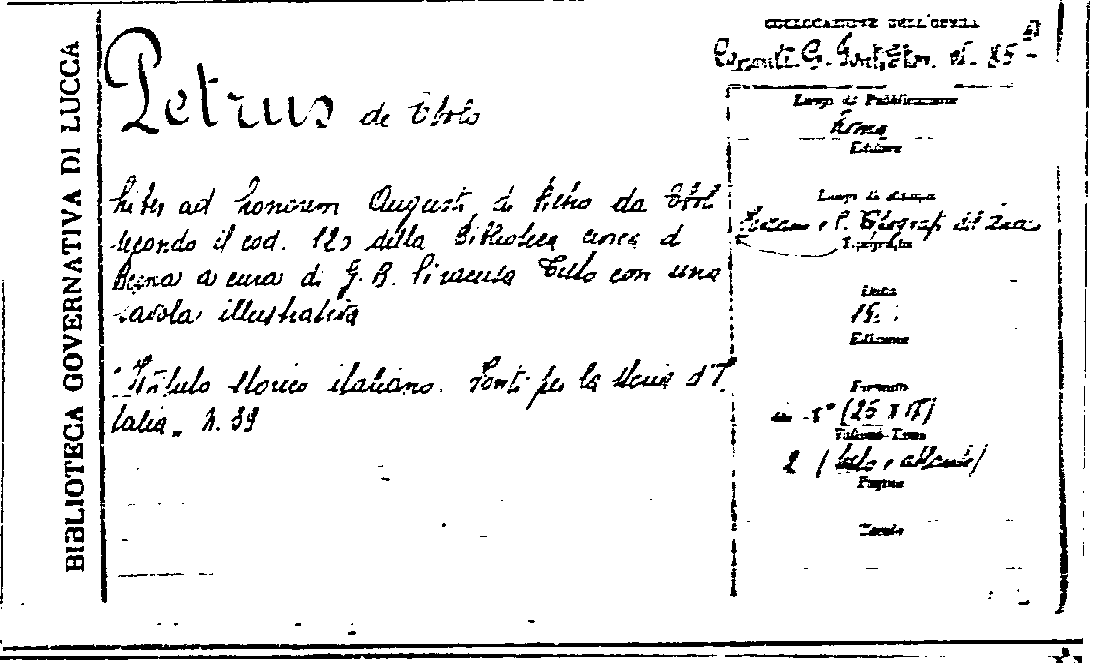 BIBLIOTECA GOVERNATIVA DI LUCCA
Petrus de Ebolo
Liber ad honorem Augusti di Pietro da Eboli
secondo il cod. 120 della Biblioteca civica di
Berna a cura di G. B. Siracusa Testo con una
tavola illustrativa
"Istituto storico italiano. Fonti per la storia d'I
talia„ N. 39
COLLOCAZIONE DELL'OPERA
Luogo di Pubblicazione
Roma
Editore
Luogo di stampa
Tipografia
Data
Edizione
Formato
(25 x 17)
Volumi-Tomi
2 (testo e atlante)
Pagine
Tavole